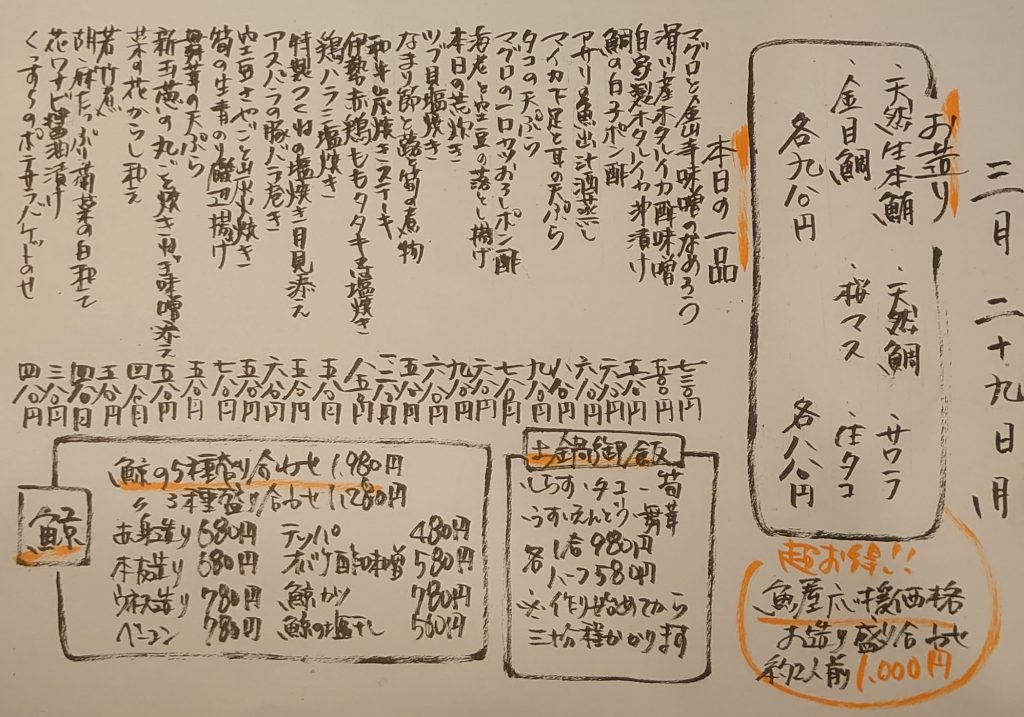 三月二十九日
お造り
・天然生本鮪
・金目鯛
各九八〇円
・天然鯛
・桜マス
・サワラ
・生タコ
各八八〇円
超お得!!
魚屋応援価格
お造り盛り合わせ
約2人前 1,000円
本日の一品
マグロと金山寺味噌のなめろう 七三〇円
滑川産ホタルイカ酢味噌 五〇〇円
自家製ホタルイカ沖漬け 五八〇円
鯛の白子ポン酢 六〇〇円
アサリの魚出汁酒蒸し 六八〇円
マイカ下足と耳の天ぷら 八〇〇円
タコの天ぷら 九八〇円
マグロの一口カツおろしポン酢 七八〇円
海老と空豆の落とし揚げ 六八〇円
本日の荒炊き 九八〇円
ツブ貝塩焼き 六八〇円
なまり節と蕗と筍の煮物 五八〇円
和牛炭焼きステーキ
伊勢赤鶏ももタタキ又は塩焼き 八五〇円
鶏ハラミ塩焼き 五八〇円
特製つくねの塩焼き月見添え 五八〇円
アスパラの豚バラ巻き 六八〇円
空豆さやごと出火焼き 五八〇円
筍の生青のり磯辺揚げ 七八〇円
舞茸の天ぷら 五八〇円
新玉葱の丸ごと焼きねぎ味噌添え 五八〇円
菜の花からし和え 四八〇円
若竹煮 五八〇円
胡麻たっぷり菊菜の白和え 四八〇円
花ワサビ醤油漬け 三八〇円
くっすーのポテサラバゲットのせ 四八〇円
土鍋御飯
・しらす・タコ・筍
・うすいえんどう・舞茸
各1合980円
ハーフ580円
※作り始めてから
三十分程かかります
鯨
鯨の5種盛り合わせ 1,980円
〃 3種盛り合わせ 1,280円
赤身造り 680円
本皮造り 680円
ウネス造り 780円
ベーコン 780円
テッパ 480円
オバケ酢味噌 580円
鯨カツ 780円
鯨の塩干し 560円